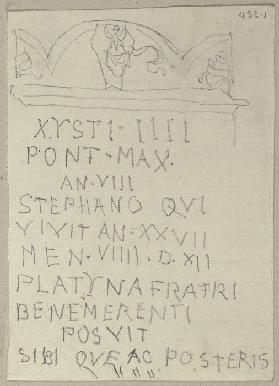 4324
XYSTI · IIII
PONT · MAX ·
AN · VIII
STEPHANO QVI
VIVIT AN · XXVII
MEN · VIIII · D · XII
PLATYNA FRATRI
BENEMERENTI
POSVIT
SIBI QVE AC POSTERIS